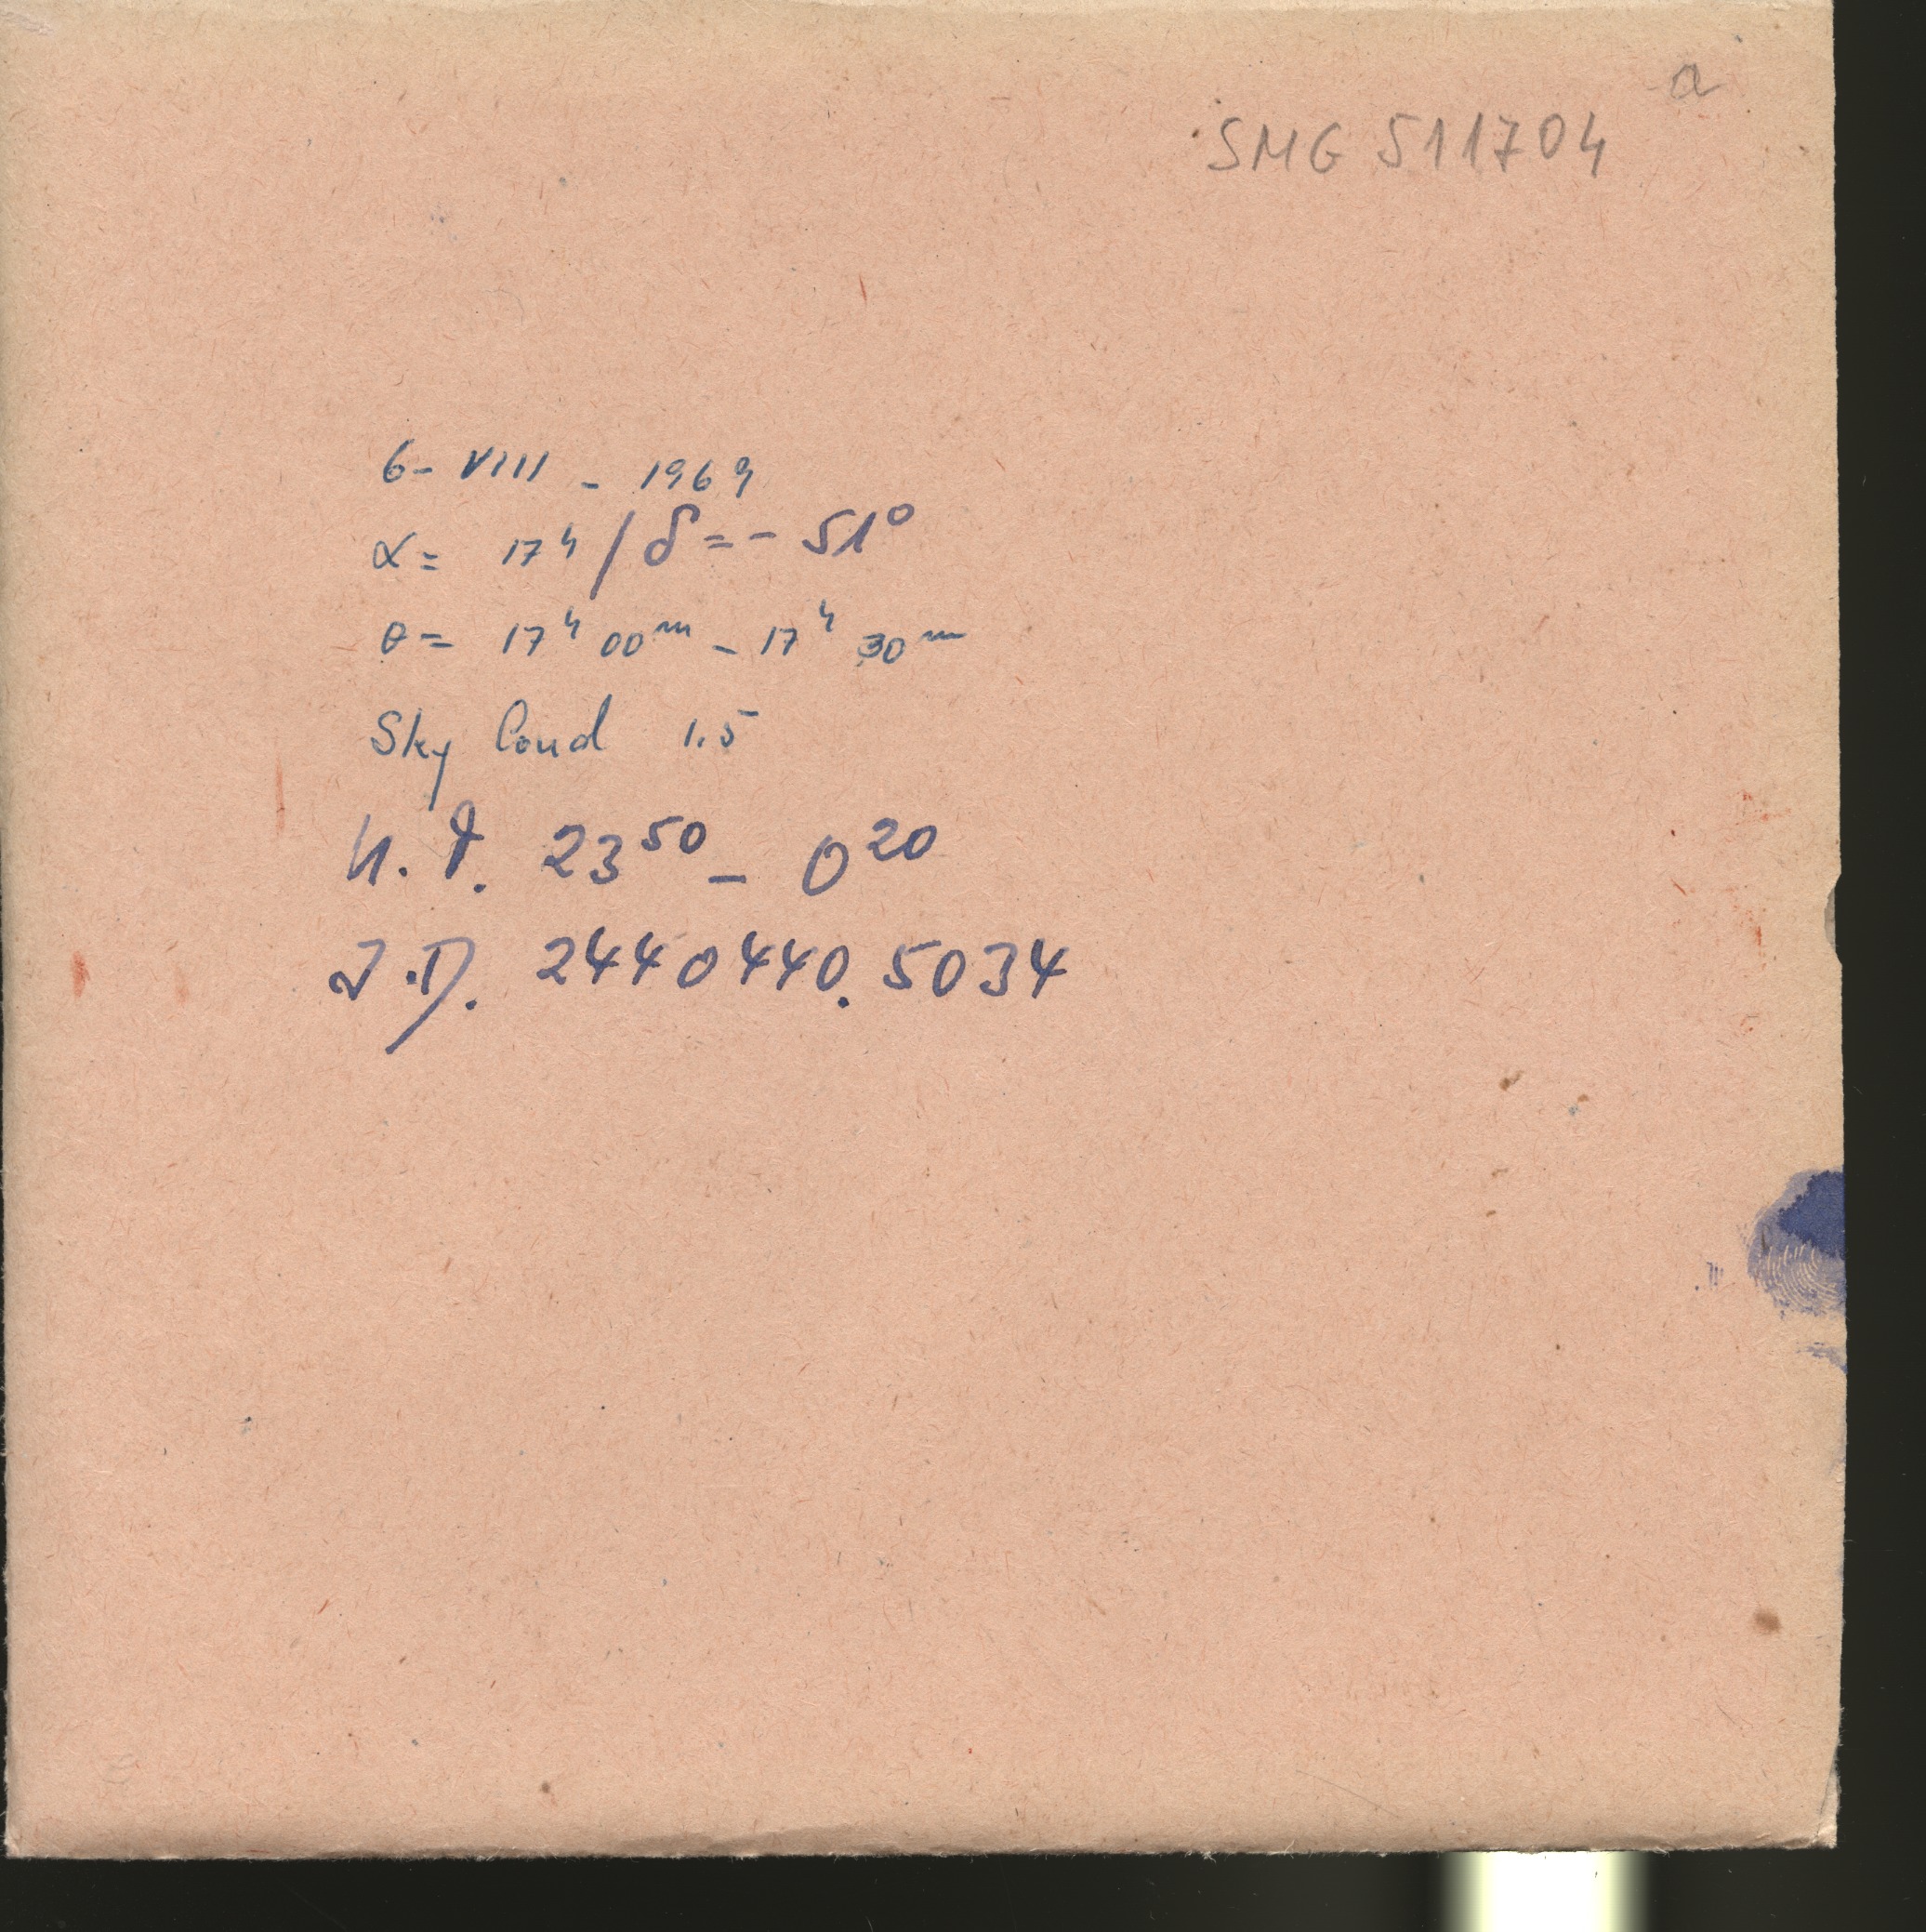 a
SMG 511704
6 - VIII - 1969
α = 17ʰ / δ = - 51°
θ = 17ʰ 00ᵐ - 17ʰ 30ᵐ
Sky Cond 1.5
U.T. 23⁵⁰ - 0²⁰
J.D. 2440440.5034